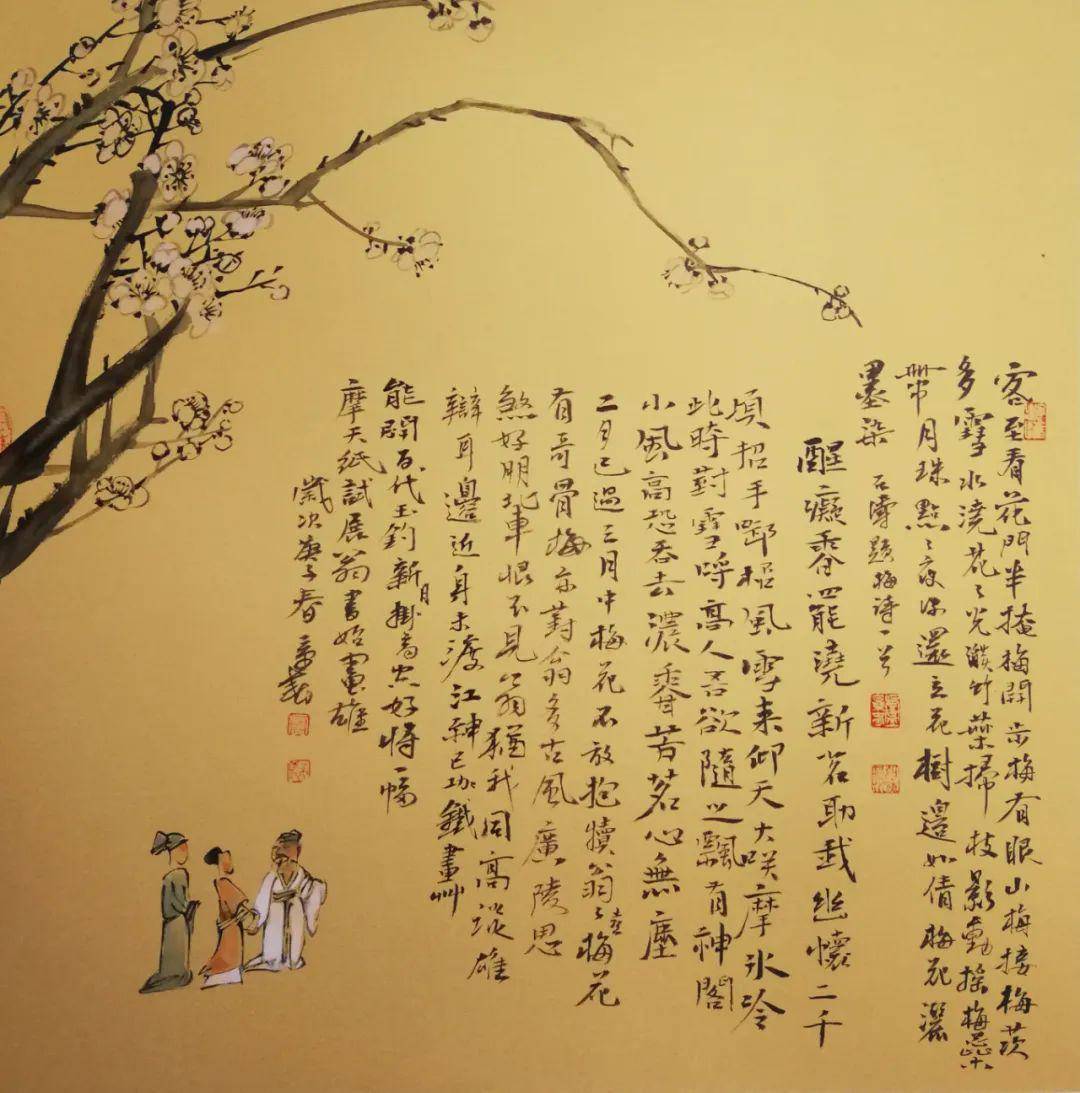 客至看花門半掩梅開步梅有眼山梅接梅茨
多雪水澆花〻光濺竹葉掃枝影動搖梅蘂
帶月珠點〻夜深還立花樹邊如倩梅花灑
墨染 石濤題梅詩一首
醒癡香罷澆新茗助我幽懷二千
頃招手唧招風雪来仰天大咲摩冰冷
此時對雪呼高人吾欲隨之飄有神閣
小風高恐吞去濃香甘苦茗心無塵
二月已過三月中梅花不放抱犢翁〻梅花
有奇骨梅亦對翁多古風廣陵思
煞好明北車恨不見翁猶我同高談雄
辯耳邊近身未渡江神已劫鐵畫艸
能開百代玉鈞新月掛高空好將一幅
摩天紙試展翁書始畫雄
歲次庚子春